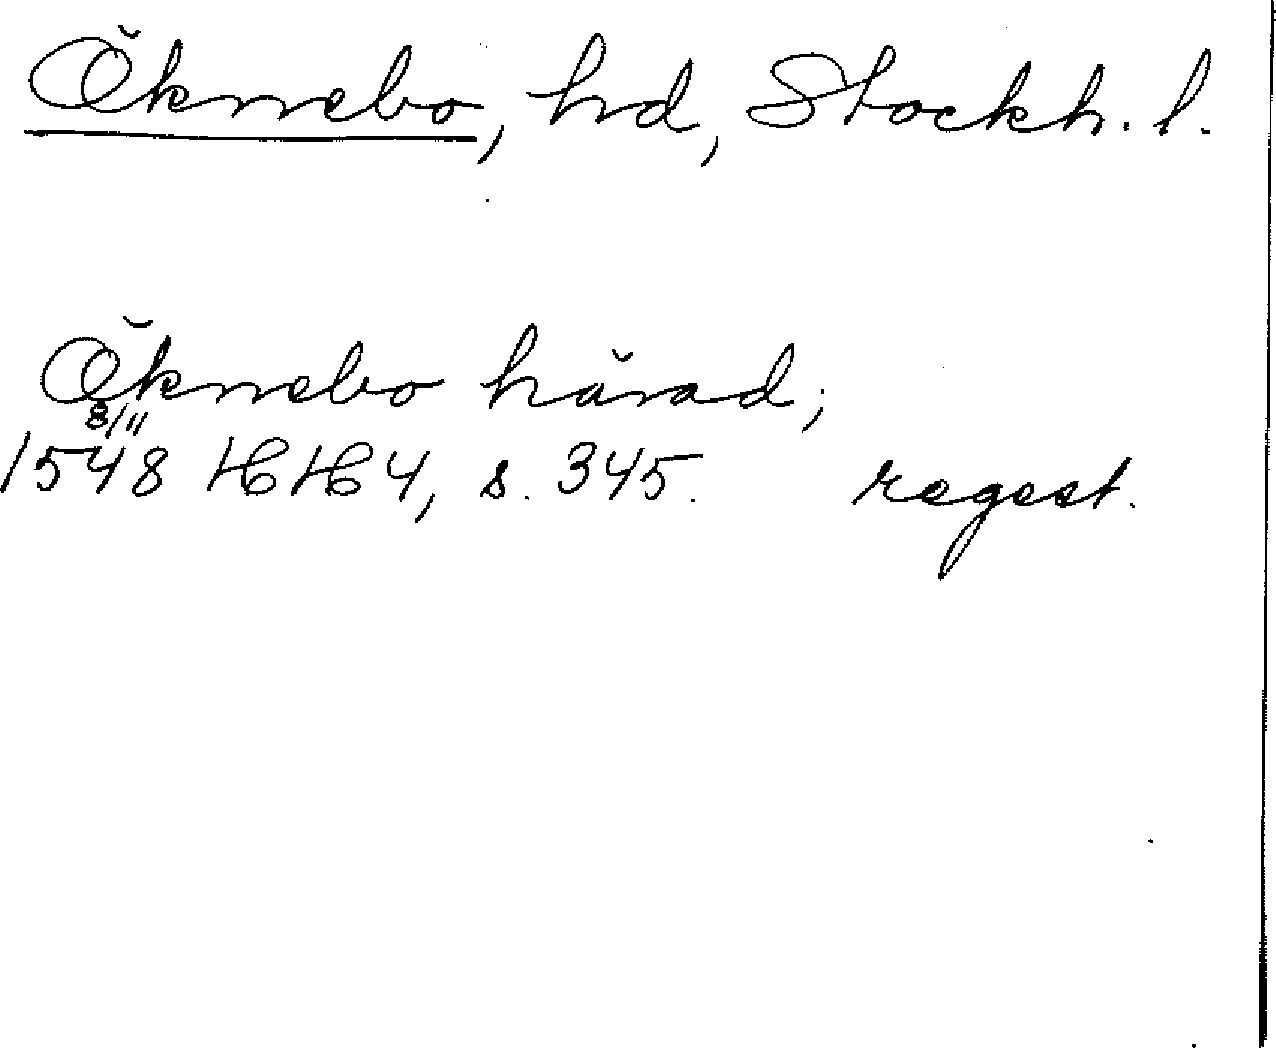 Öknebo, hd, Stockh. l.
Öknebo härad;
8/11
1548 HH 4, s. 345. regest.